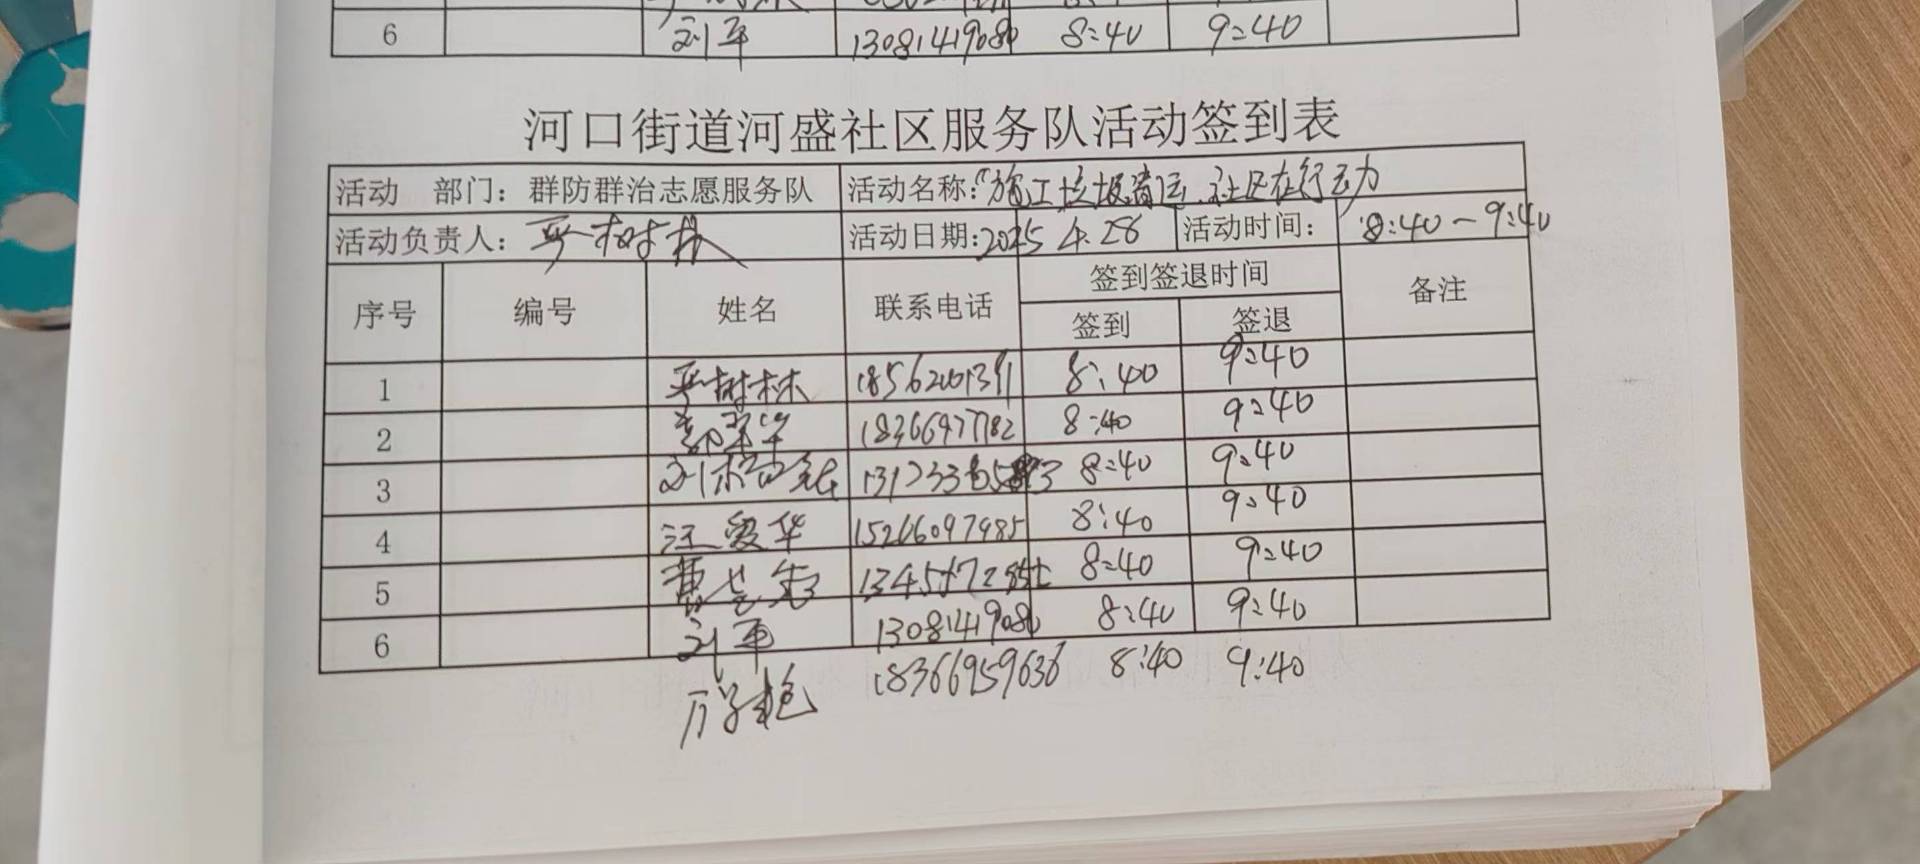 6 刘平 13081419080 8:40 9:40
河口街道河盛社区服务队活动签到表
活动 部门：群防群治志愿服务队 活动名称："施工垃圾清运,社区在行动
活动负责人：严树林 活动日期：2025 4.28 活动时间：8:40-9:40
序号 编号 姓名 联系电话 签到签退时间 备注
签到 签退
1 严树林 18562001391 8:40 9:40
2 18366977782 8:40 9:40
3 8:40 9:40
4 汪爱华 15266097985 8:40 9:40
5 8:40 9:40
6 刘平 13081419080 8:40 9:40
18366959636 8:40 9:40